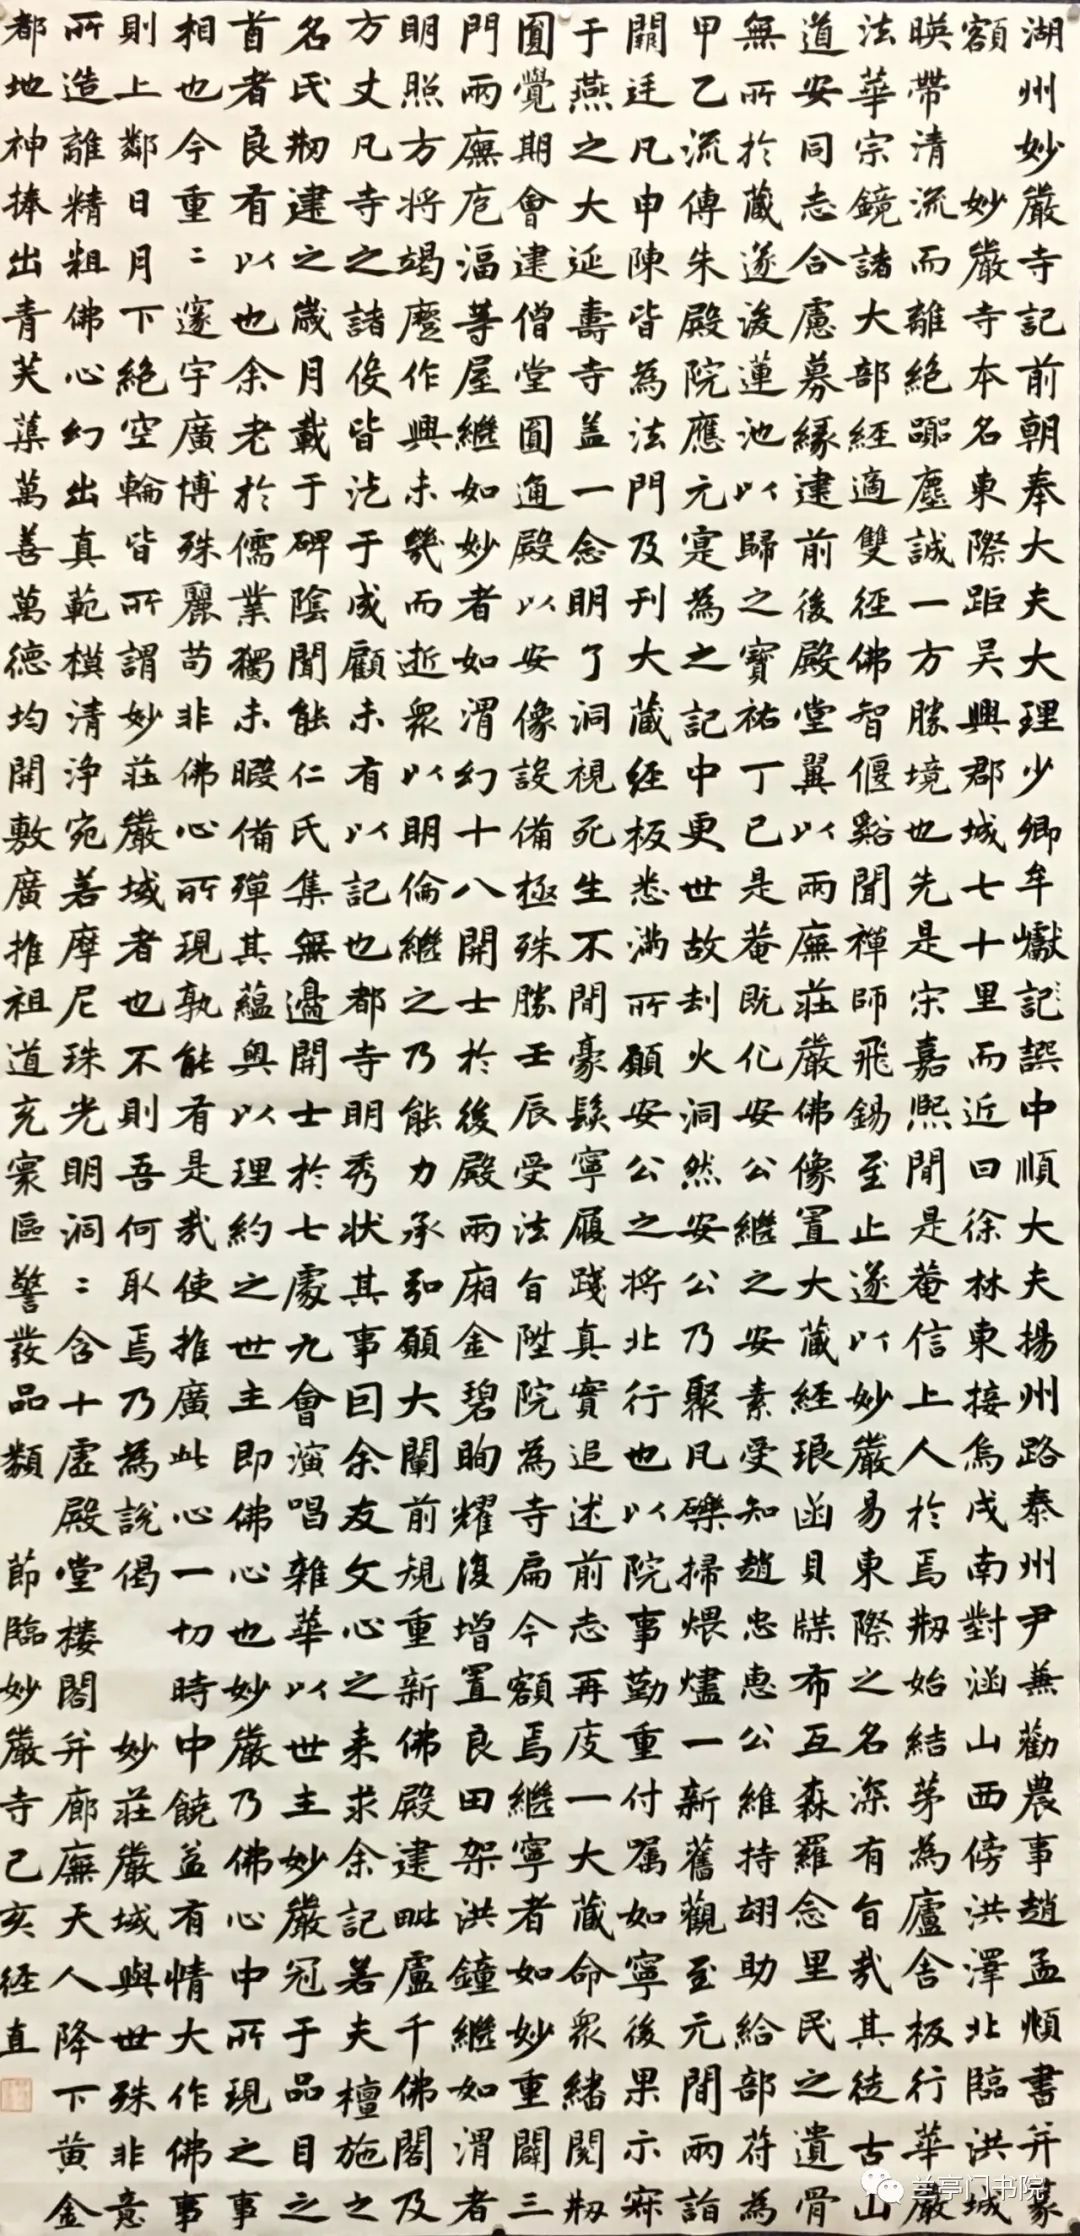 湖州妙嚴寺記前朝奉大夫大理少卿牟巘記譔中順大夫揚州路泰州尹兼勸農事趙孟頫書并篆
額　妙嚴寺本名東際距吳興郡城七十里而近曰徐林東接烏戍南對涵山西傍洪澤北臨洪城
暎帶清流而離絕囂塵誠一方勝境也先是宋嘉熙間是菴信上人於焉剏始結茅為廬舍板行華嚴
法華宗鏡諸大部經適雙徑佛智偃谿聞禪師飛錫至止遂以妙嚴易東際之名深有旨哉其徒古山
道安同志合慮募緣建前後殿堂翼以兩廡莊嚴佛像置大藏經琅函貝牒布互森羅念里民之遺骨
無所於藏遂浚蓮池以歸之寶祐丁巳是菴既化安公繼之安素受知趙忠惠公維持翊助給部符為
甲乙流傳朱殿院應元寔為之記中更世故刼火洞然安公乃聚凡礫掃煨燼一新舊觀至元間兩詣
闕廷凡申陳皆為法門及刊大藏經板悉滿所願安公之將北行也以院事勤重付囑如寧後果示寂
于燕之大延壽寺盖一念明了洞視死生不間豪髮寧履踐真實追述前志再度一大藏命衆緒閱剏
圓覺期會建僧堂圓通殿以安像設備極殊勝壬辰受法旨陞院為寺扁今額焉繼寧者如妙重闢三
門兩廡庖湢等屋繼如妙者如渭幻十八開士於後殿兩廂金碧眴耀復增置良田架洪鐘繼如渭者
明照方將竭蹙作興未幾而逝衆以明倫繼之乃能力承弘願大闡前規重新佛殿建毗盧千佛閣及
方丈凡寺之諸役皆汔于成顧未有以記也都寺明秀狀其事囙余友文心之来求余記若夫檀施之
名氏剏建之歲月載于碑陰聞能仁氏集無邊開士於七處九會演唱雜華以世主妙嚴冠于品目之
首者良有以也余老於儒業獨未暇備殫其蘊奥以理約之世主即佛心也妙嚴乃佛心中所現之事
相也今重々邃宇廣博殊麗苟非佛心所現孰能有是哉使推廣此心一切時中饒益有情大作佛事
則上鄰日月下絕空輪皆所謂妙莊嚴域者也不則吾何取焉乃為說偈　妙莊嚴域與世殊非意
所造離精粗佛心幻出真範模清淨宛若摩尼珠光明洞々含十虛殿堂樓閣并廊廡天人降下黃金
都地神捧出青芙蕖萬善萬德均開敷廣推祖道充寰區警發品類　節臨妙嚴寺己亥經直
兰亭门书院